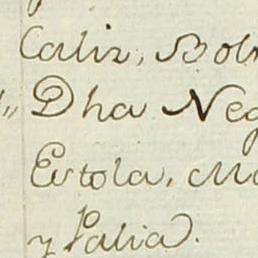 Caliz, Bol
" Dha Neg
Estola, Ma
y Palia.